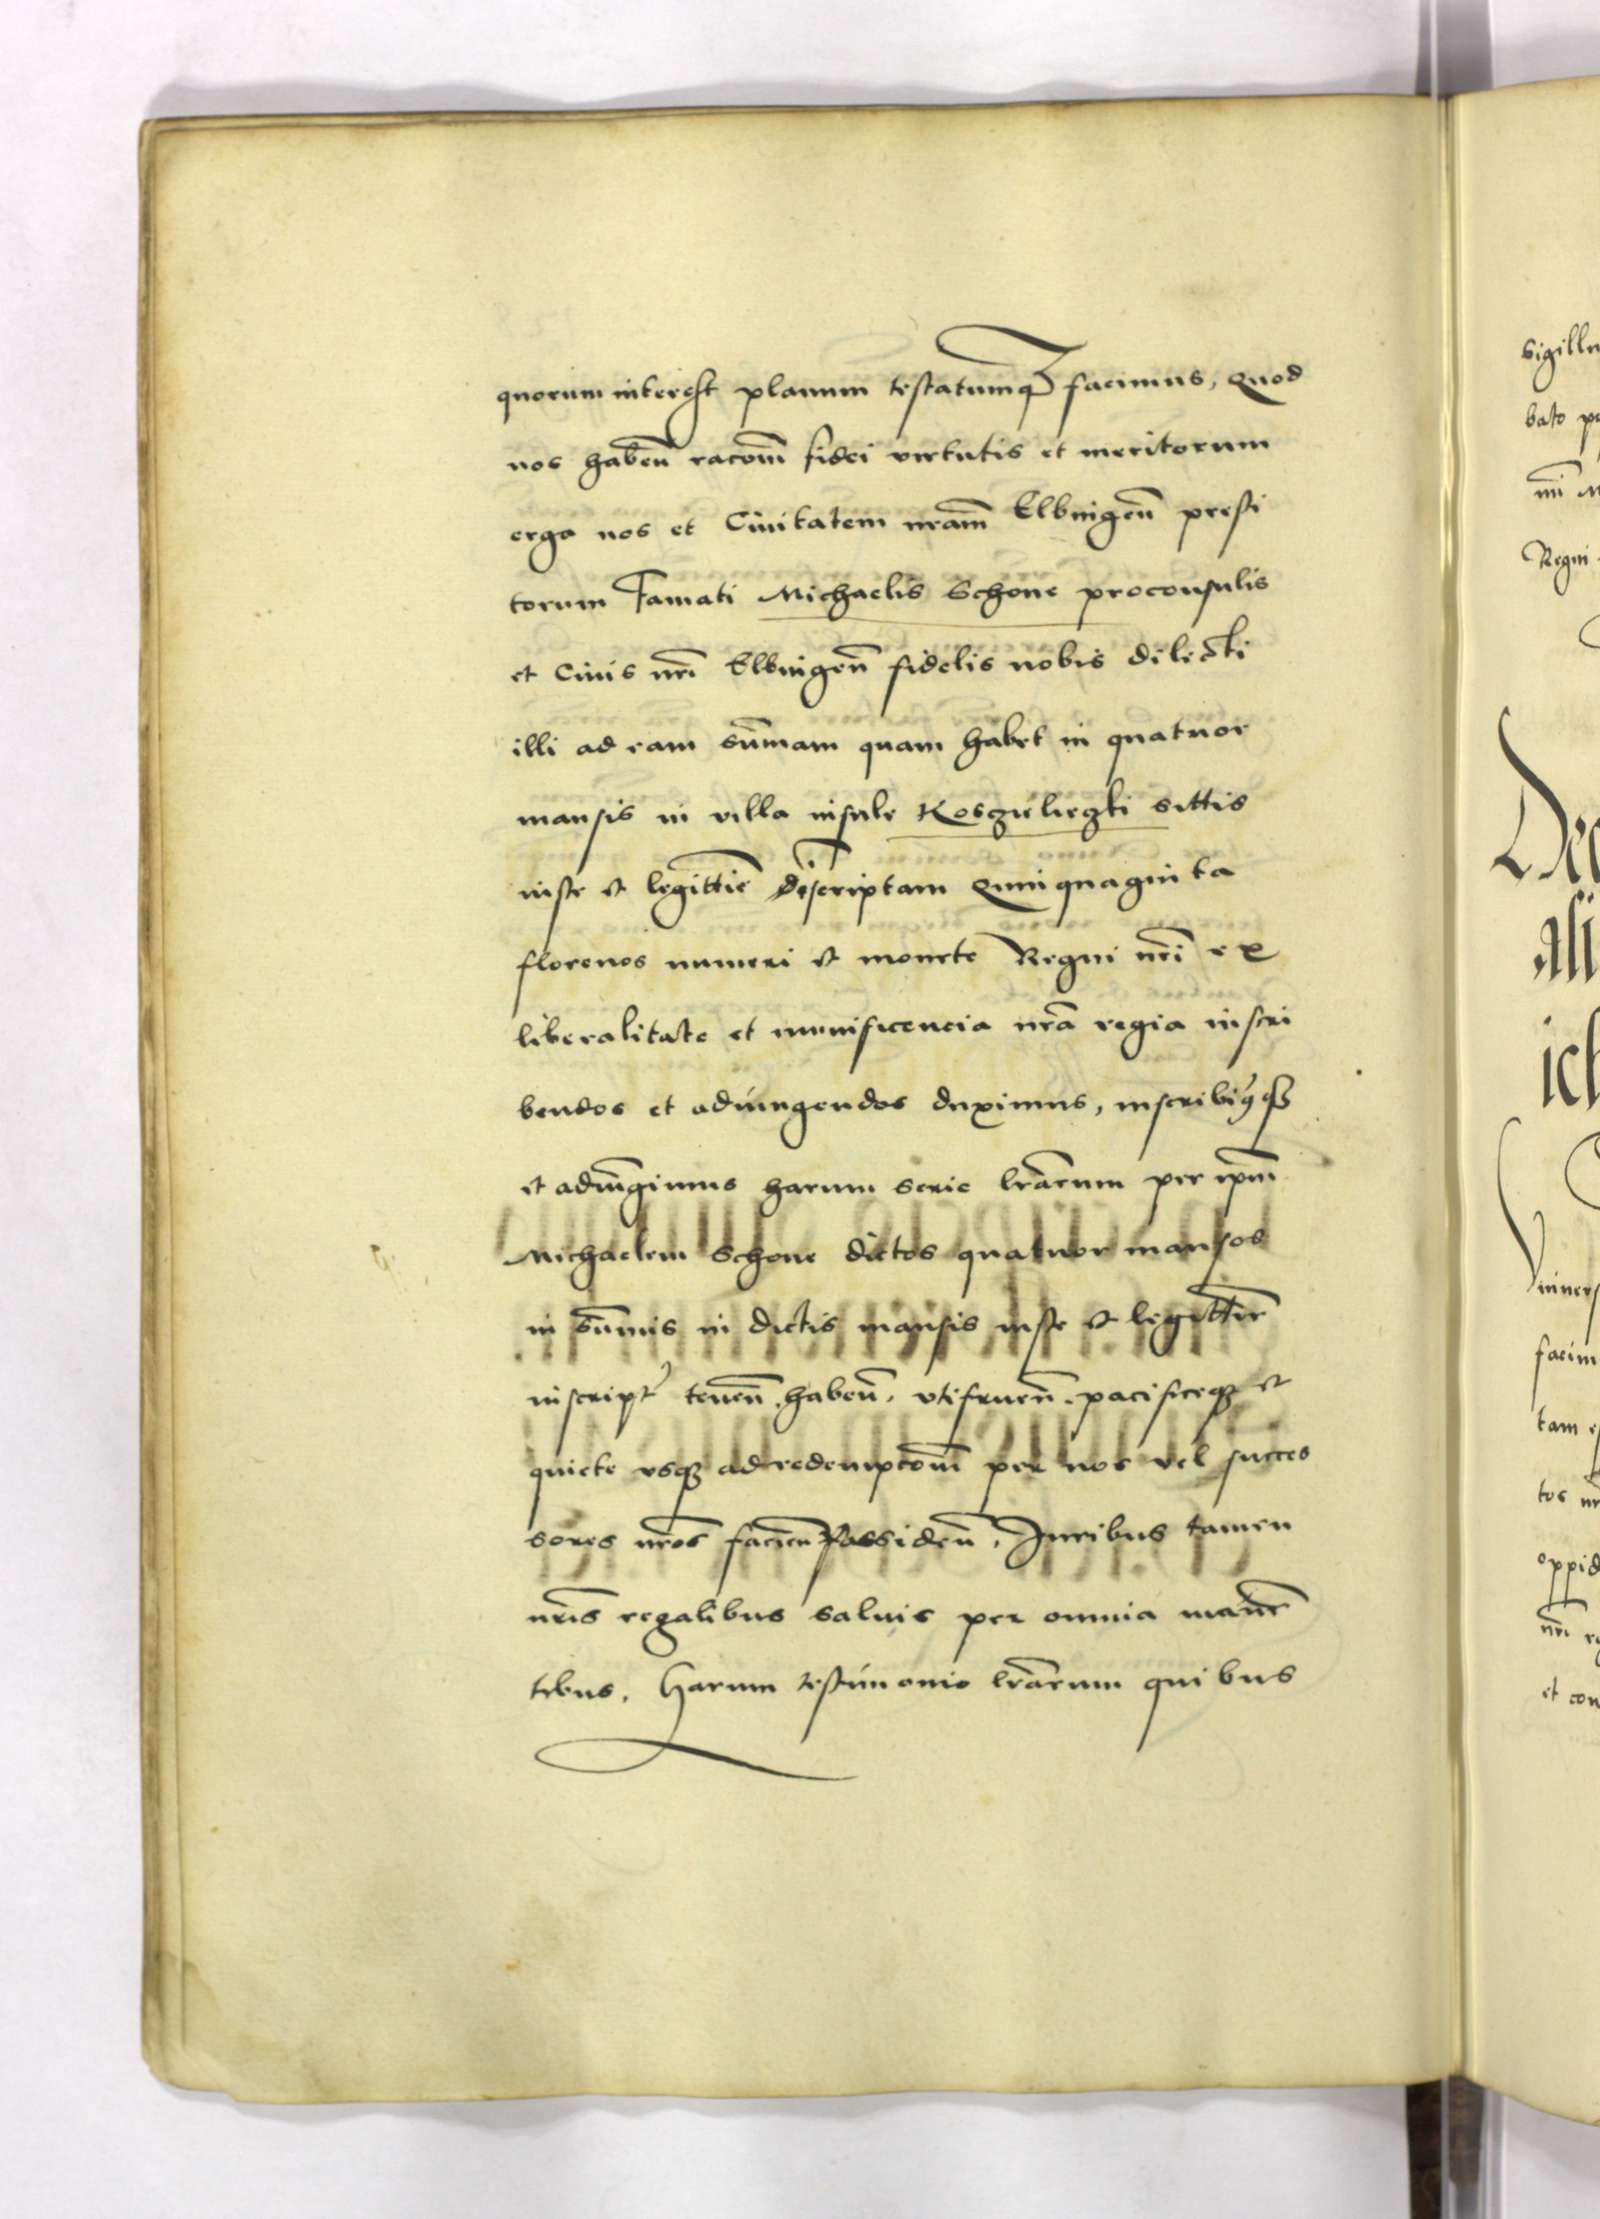 quorum interest planum testatumq̃ facimus, Quod
nos habeñ racom̃ fidei virtutis et meritorum
erga nos et Ciuitatem nram̃ Elbingeñ presti
torum Famati Michaelis Schone proconsulis
et Ciuis nrĩ Elbingeñ fidelis nobis dilecti
illi ad eam sum̃am quam habet in quatuor
mansis in villa insule sittis
iuste et legittiẽ Quinquaginta
florenos numeri et monete Regni nrĩ ex
liberalitate et munificencia nrã regia inscri
bendos et adiungendos duximus, inscribim9q3
et adiũgimus harum serie lrãrum per ipm̃
Michaelem Schone dictos quatuor mansos
in sum̃is in dictis mansis iuste et legittiẽ
inscript' teneñ. habeñ. vtifrueñ. pacificeq3 et
quiete vsq3 ad redempcom̃ per nos vel succes
sores nrõs Possideñ, Iuribus tamen
nrĩs regalibus saluis per omnia manẽ
tibus. Harum testimonio lrãrum quibus
sigillu
bato
Regni
ali
ich
facim
tam
tos
oppid
nrĩ
et con